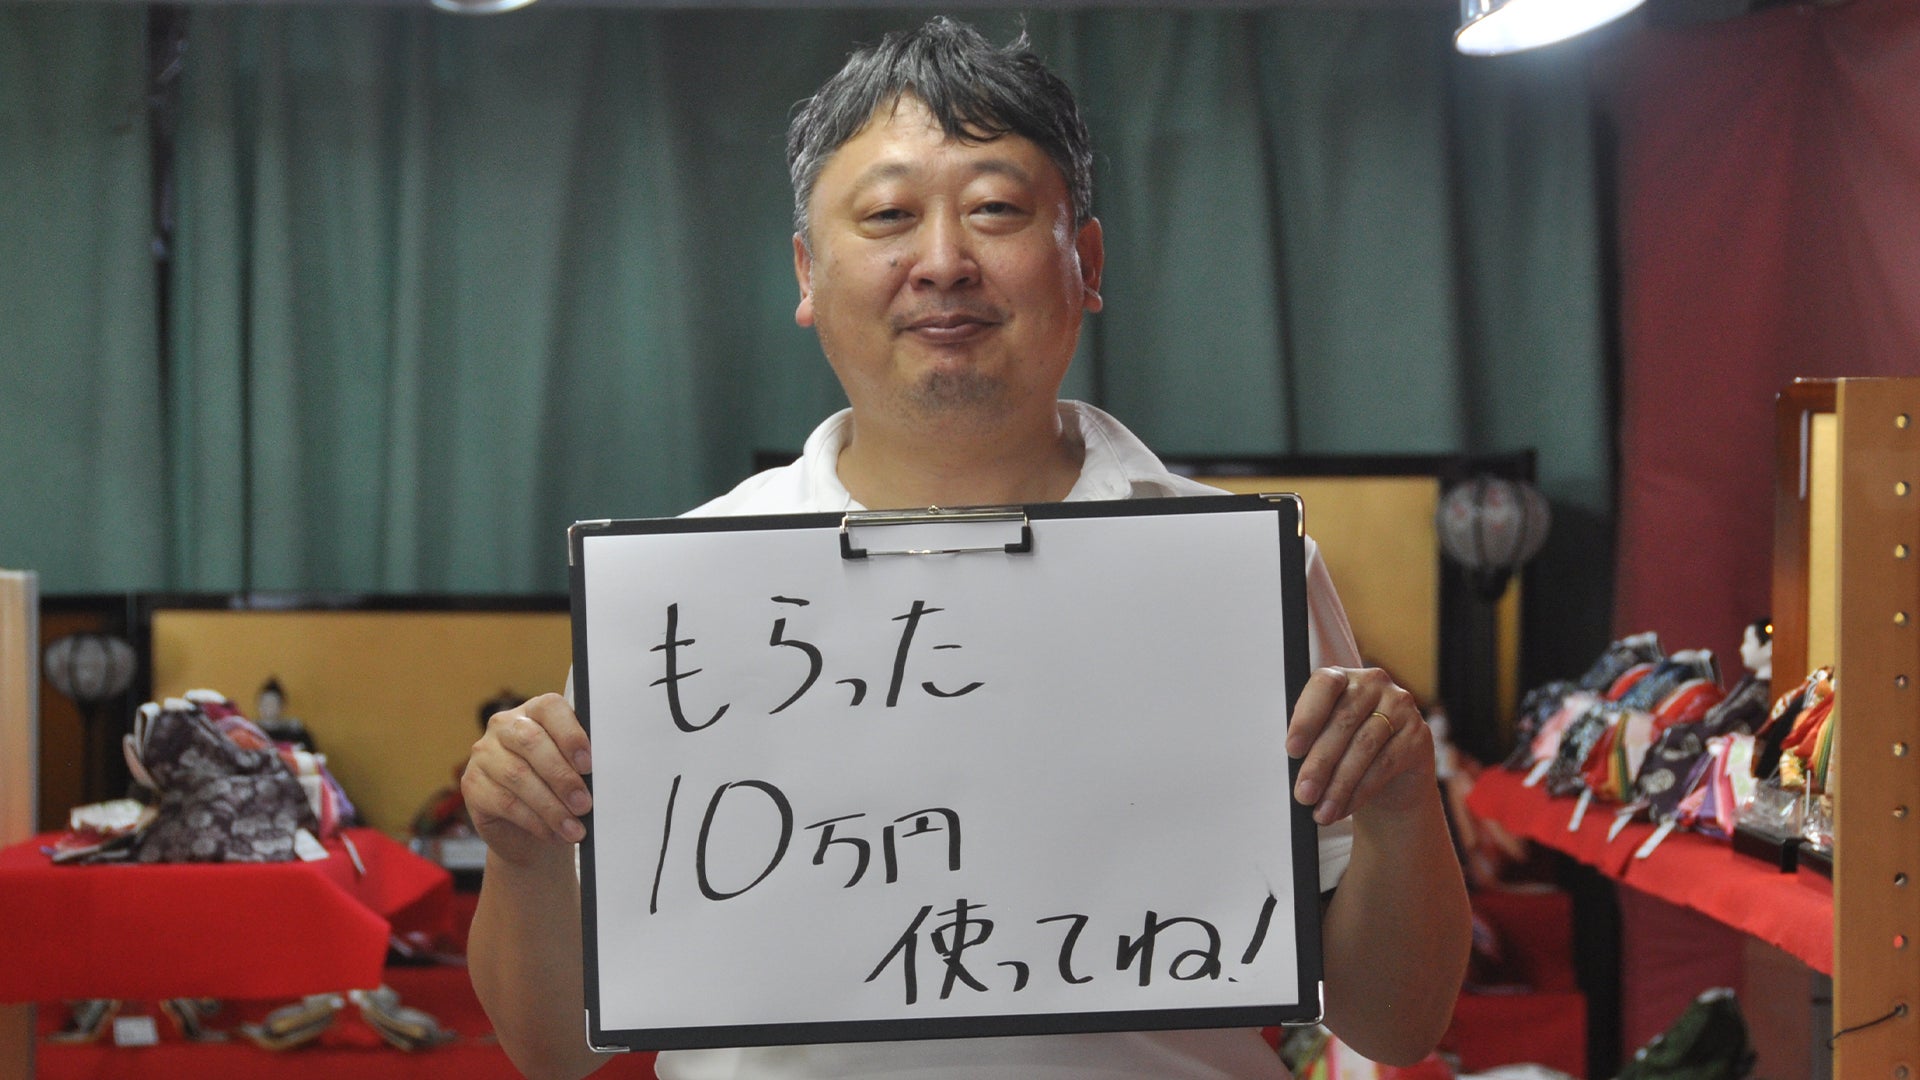 もらった
10万円
使ってね!